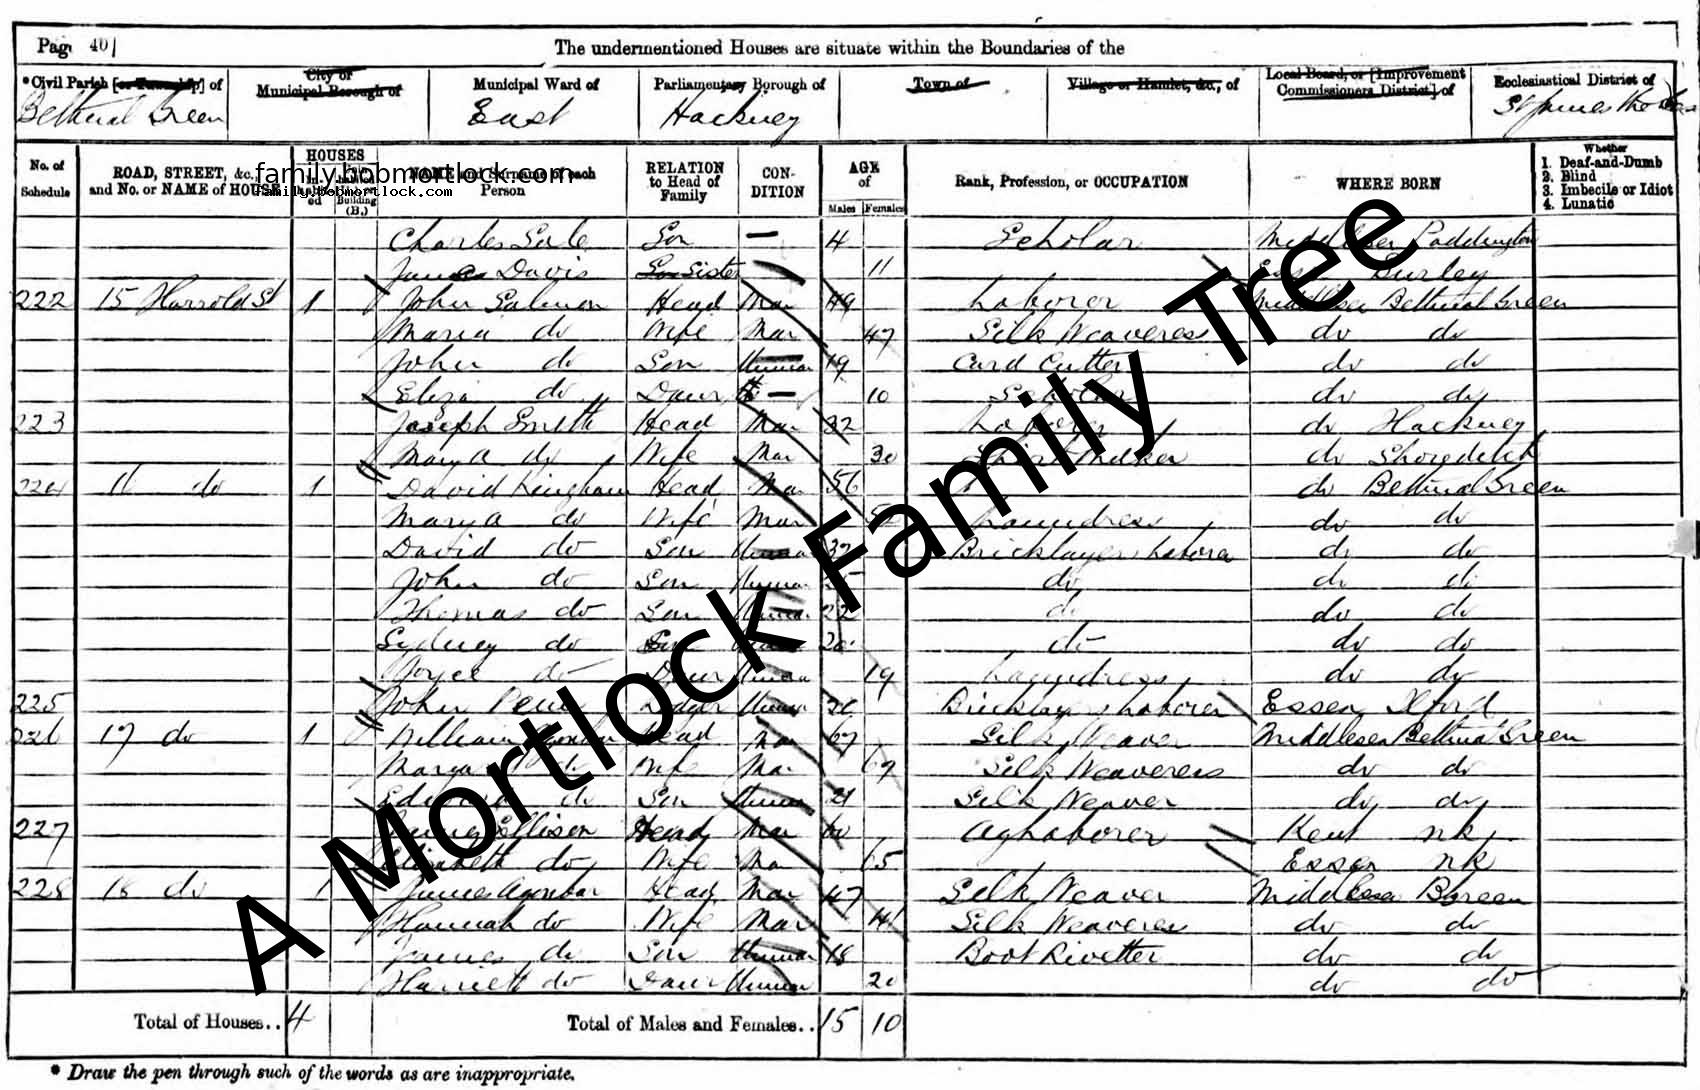 Page 40
The undermentioned Houses are situate within the Boundaries of the
*Civil Parish [or Township] of
City or Municipal Borough of
Municipal Ward of
Parliamentary Borough of
Town of
Village or Hamlet, &c., of
Local Board, or [Improvement Commissioners District] of
Ecclesiastical District of
Bethnal Green
East
Hackney
No. of Schedule
ROAD, STREET, &c., and No. or NAME of HOUSE
HOUSES
(B.)
NAME and Surname of each Person
RELATION to Head of Family
CONDITION
AGE of
Males
Females
Rank, Profession, or OCCUPATION
WHERE BORN
Whether
1. Deaf-and-Dumb
2. Blind
3. Imbecile or Idiot
4. Lunatic
family.bobmortlock.com
family.bobmortlock.com
Charles Son — 4 Scholar Middlesex Paddington
Davis Sister 11
222 15 Harrold St 1 John Salmon Head Mar 49 Laborer Middlesex Bethnal Green
Maria do Wife Mar 47 Silk Weaveress do do
John do Son Unmar 19 Card Cutter do do
Eliza do Daur — 10 Scholar do do
223 Joseph Smith Head Mar 32 Laborer do Hackney
Mary A do Wife Mar 30 do Shoreditch
224 16 do 1 David Kingham Head Mar 56 do Bethnal Green
Mary A do Wife Mar Laundress do do
David do Son Unmar 32 Bricklayers Laborer do do
John do Son Unmar do do do
Thomas do Son Unmar 22 do do do
Sydney do Son 20 do do do
Joyce do Daur Unmar 19 Laundress do do
225 John Unmar Bricklayers Laborer Essex Ilford
226 17 do 1 William Head Mar 67 Silk Weaver Middlesex Bethnal Green
do Wife Mar 69 Silk Weaveress do do
Edward do Son Unmar 21 Silk Weaver do do
227 Ellison Head Mar 60 Ag Laborer Kent nk
Elizabeth do Wife Mar 65 Essex nk
228 18 do 1 James Head Mar 47 Silk Weaver Middlesex B green
Hannah do Wife Mar 41 Silk Weaveress do do
James do Son Unmar 18 Boot Rivetter do do
Harriett do Daur Unmar 20 do do
Total of Houses.. 4
Total of Males and Females.. 15 10
* Draw the pen through such of the words as are inappropriate.
A Mortlock Family Tree